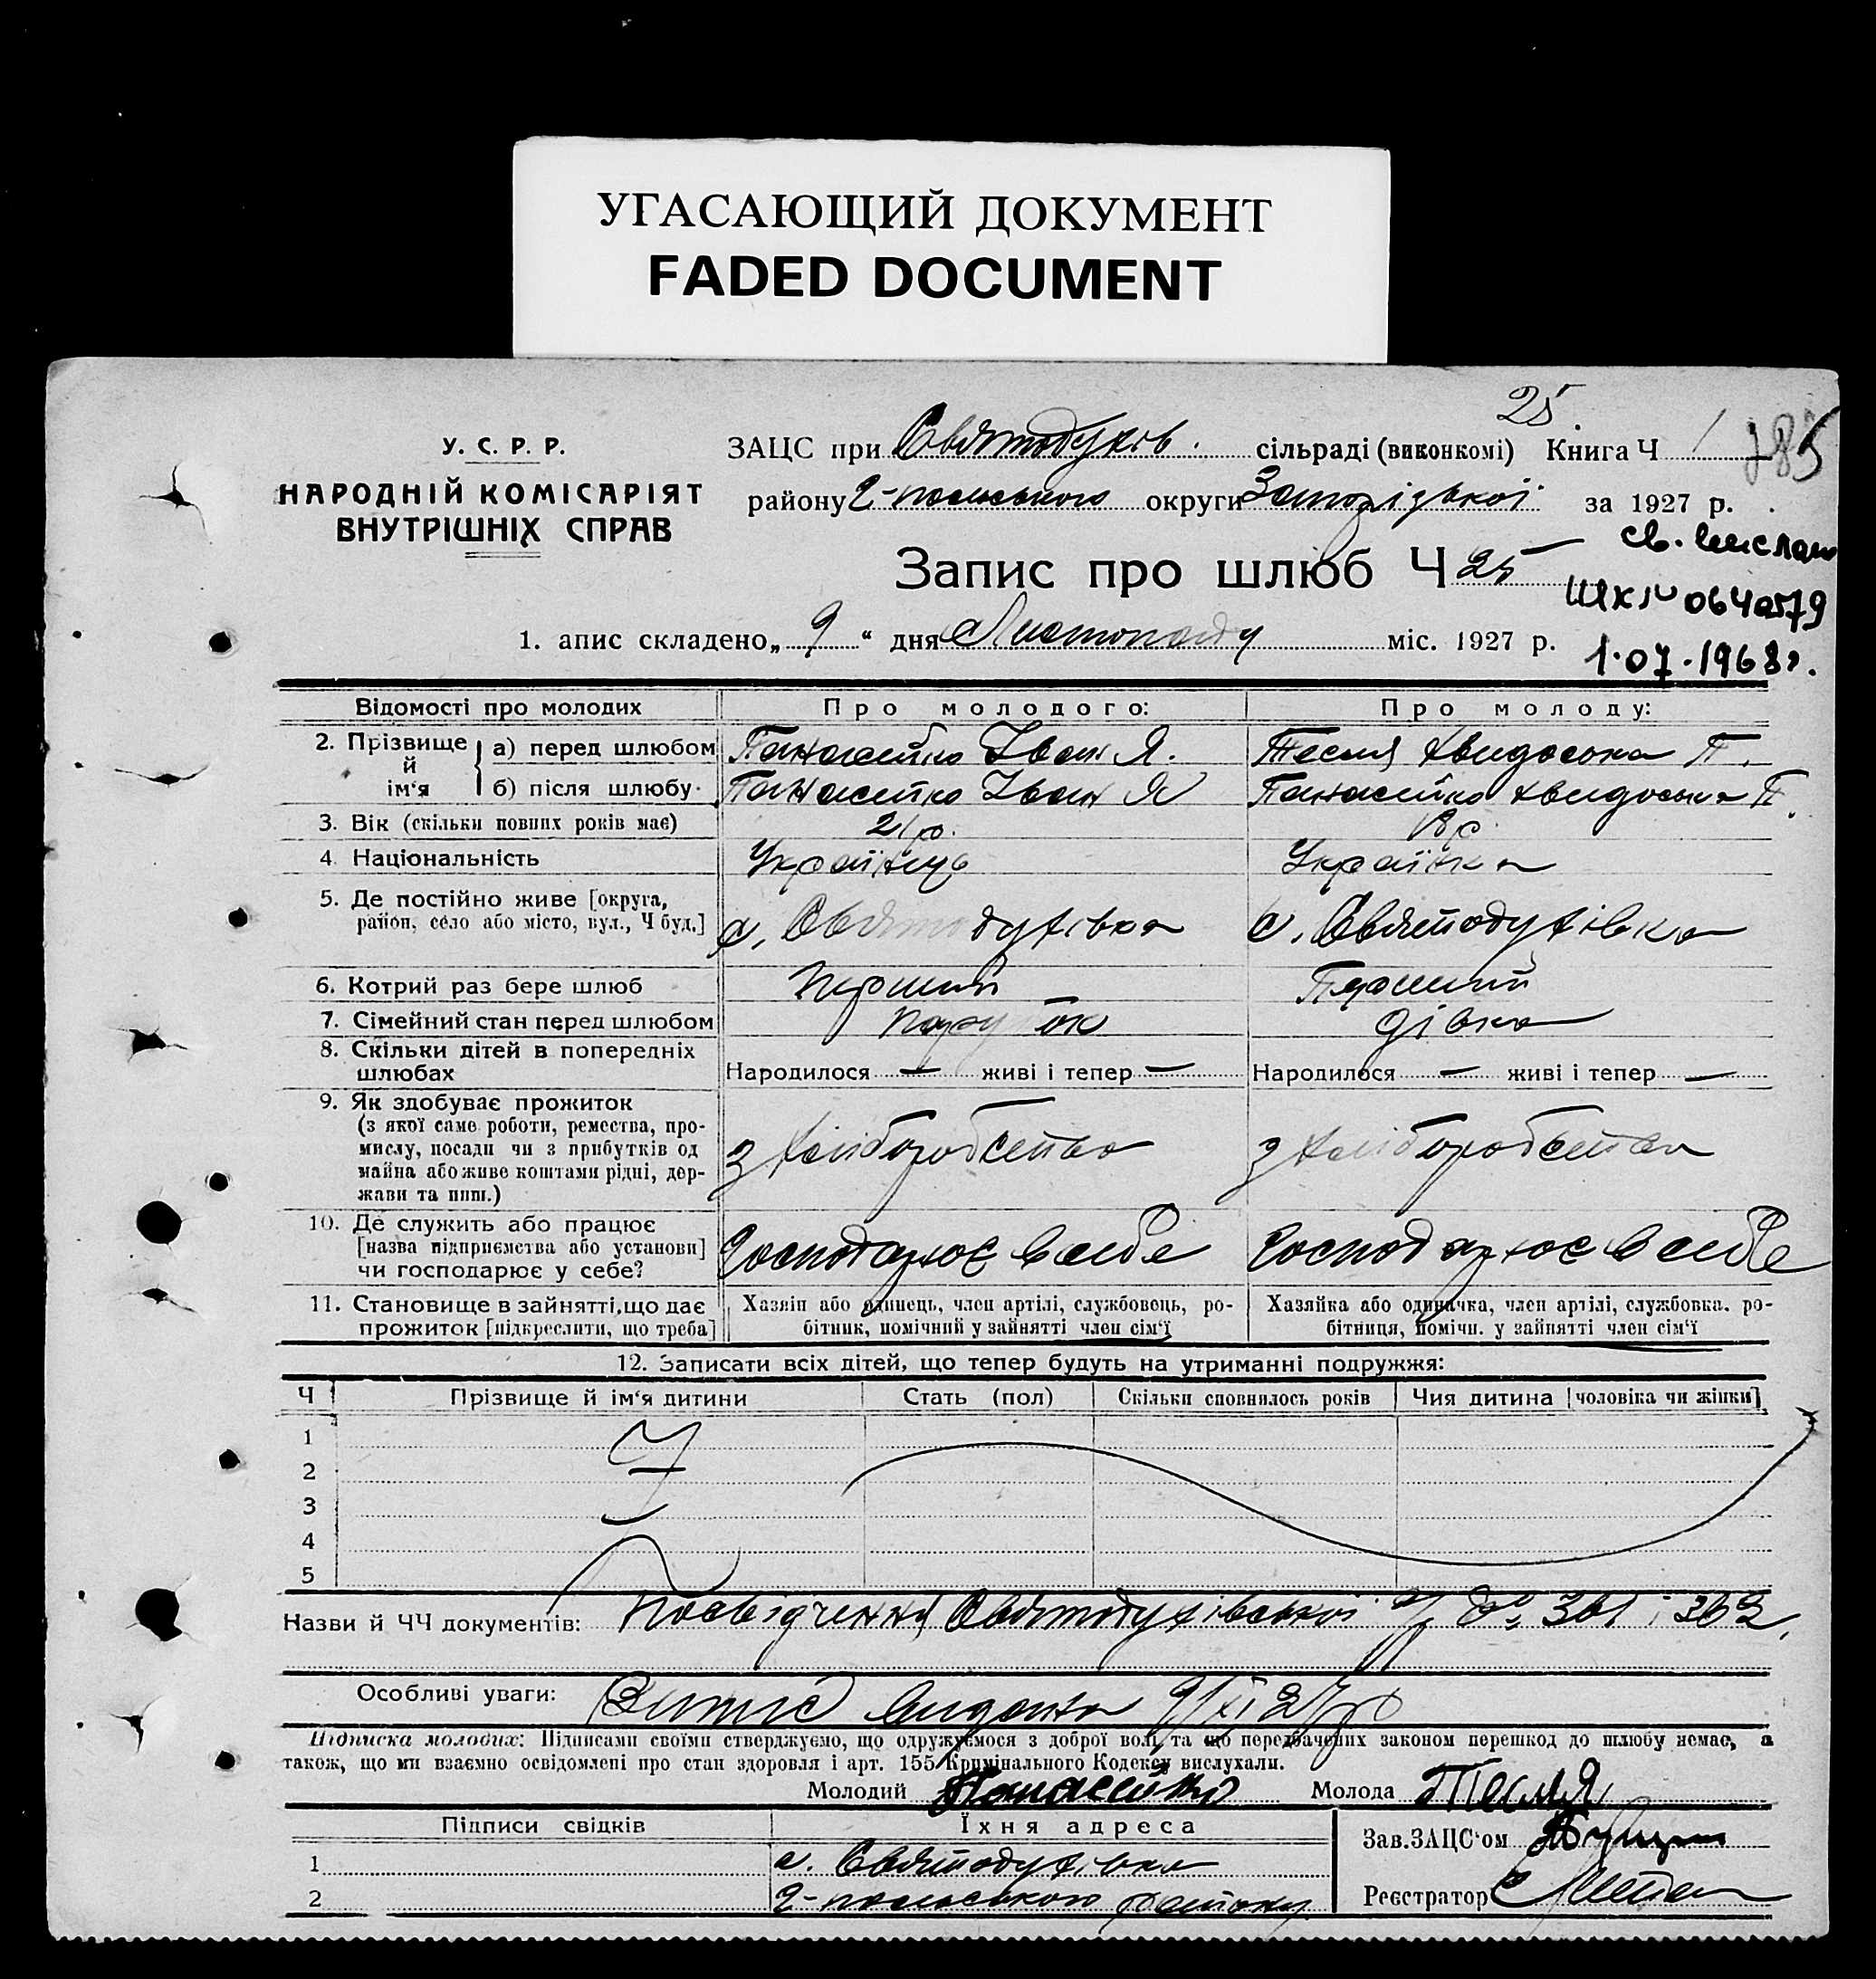 УГАСАЮЩИЙ ДОКУМЕНТ
FADED DOCUMENT
25.
У. С. Р. Р.
НАРОДНІЙ КОМІСАРІЯТ
ВНУТРІШНІХ СПРАВ
ЗАЦС при Святодухів. сільраді (виконкомі) Книга Ч 1
785
району Г-польського округи Запорізької за 1927 р.
Запис про шлюб Ч 25
св.
№ 0640579
1.07.1968г.
1. апис складено „ 9 “ дня Листопаду міс. 1927 р.
Відомості про молодих Про молодого: Про молоду:
2. Прізвище й ім‘я а) перед шлюбом Панасейко Іван Я. Тесля Хведоська П.
б) після шлюбу Панасейко Іван Я Панасейко Хведоська П.
3. Вік (скільки повних років має) 21 р. 18 р.
4. Національність Українець Українка
5. Де постійно живе [округа,
район, село або місто, вул., Ч буд.] с. Святодухівка с. Святодухівка
6. Котрий раз бере шлюб Перший Перший
7. Сімейний стан перед шлюбом Парубок Дівка
8. Скільки дітей в попередніх
шлюбах Народилося — живі і тепер — Народилося — живі і тепер —
9. Як здобуває прожиток
(з якої саме роботи, ремества, про-
мислу, посади чи з прибутків од
майна або живе коштами рідні, дер-
жави та инш.) З хліборобства З хліборобства
10. Де служить або працює
[назва підприємства або установи]
чи господарює у себе? Господарює в себе Господарює в себе
11. Становище в зайнятті, що дає
прожиток [підкреслити, що треба]
Хазяїн або одинець, член артілі, службовець, ро-
бітник, помічний у зайнятті член сім‘ї
Хазяйка або одиначка, член артілі, службовка, ро-
бітниця, помічн. у зайнятті член сім‘ї
12. Записати всіх дітей, що тепер будуть на утриманні подружжя:
Ч Прізвище й ім‘я дитини Стать (пол) Скільки сповнилось років Чия дитина [чоловіка чи жінки]
1
2
3
4
5
Назви й ЧЧ документів: Посвідчення Святодухівської с/р за № 361 і 362.
Особливі уваги: Витяг видано 9/XI 27 р
Підписка молодих: Підписами своїми стверджуємо, що одружуємося з доброї волі, та що передбачених законом перешкод до шлюбу немає, а
також, що ми взаємно освідомлені про стан здоровля і арт. 155 Кримінального Кодексу вислухали.
Молодий Панасейко Молода Тесля
Підписи свідків Їхня адреса
Зав.ЗАЦС‘ом
1 с. Святодухівка
2 Г-польського району
Реєстратор